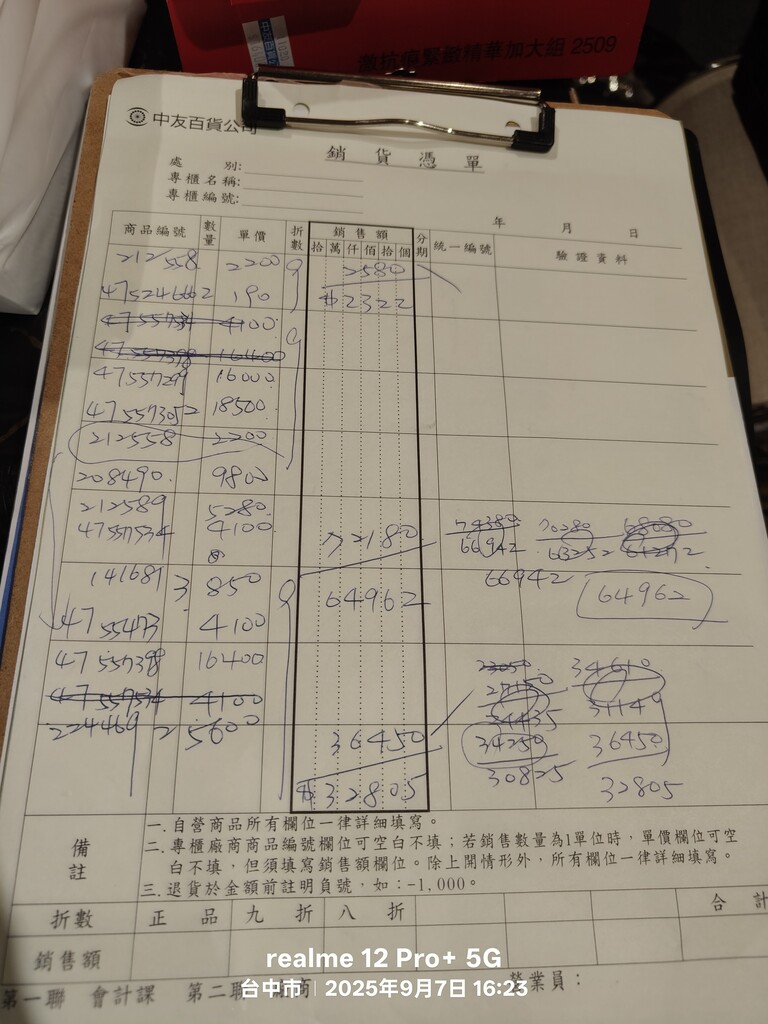 緻抗痕緊緻精華加大組 2509
中友百貨公司
銷貨憑單
處 別:
專櫃名稱:
專櫃編號:
年 月 日
商品編號 數量 單價 折數 銷售額 分期 統一編號 驗證資料
拾 萬 仟 佰 拾 個
212558 2200 9 2580
475246662 190 $2322
4755734 4100 9
47557398 16400
47557299 16000
475573052 18500
212558 2200
208490. 9800
212589 5280
47557534 4100 72180 74380 70280 68080
66942 63252 61272
141681 3 850 9 64962 66942 64962
4755473 4100
47557398 16400 23050 34610
47557534 4100 27150 31149
34435
224469 2 5600 36450 34250 36450
$32805 30825 32805
備註
一.自營商品所有欄位一律詳細填寫。
二.專櫃廠商商品編號欄位可空白不填；若銷售數量為1單位時，單價欄位可空
白不填，但須填寫銷售額欄位。除上開情形外，所有欄位一律詳細填寫。
三.退貨於金額前註明負號，如：-1,000。
折數 正品 九折 八折 合計
銷售額
第一聯 會計課 第二聯 廠商 營業員：
realme 12 Pro+ 5G
台中市 | 2025年9月7日 16:23